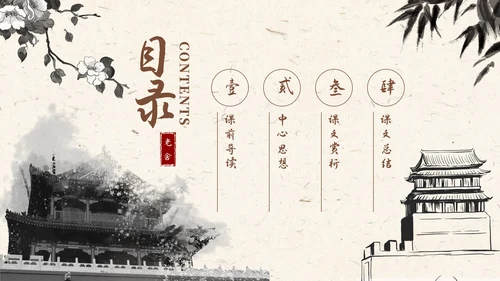 目录
CONTENTS
老舍
壹
课前导读
贰
中心思想
叁
课文赏析
肆
课文总结